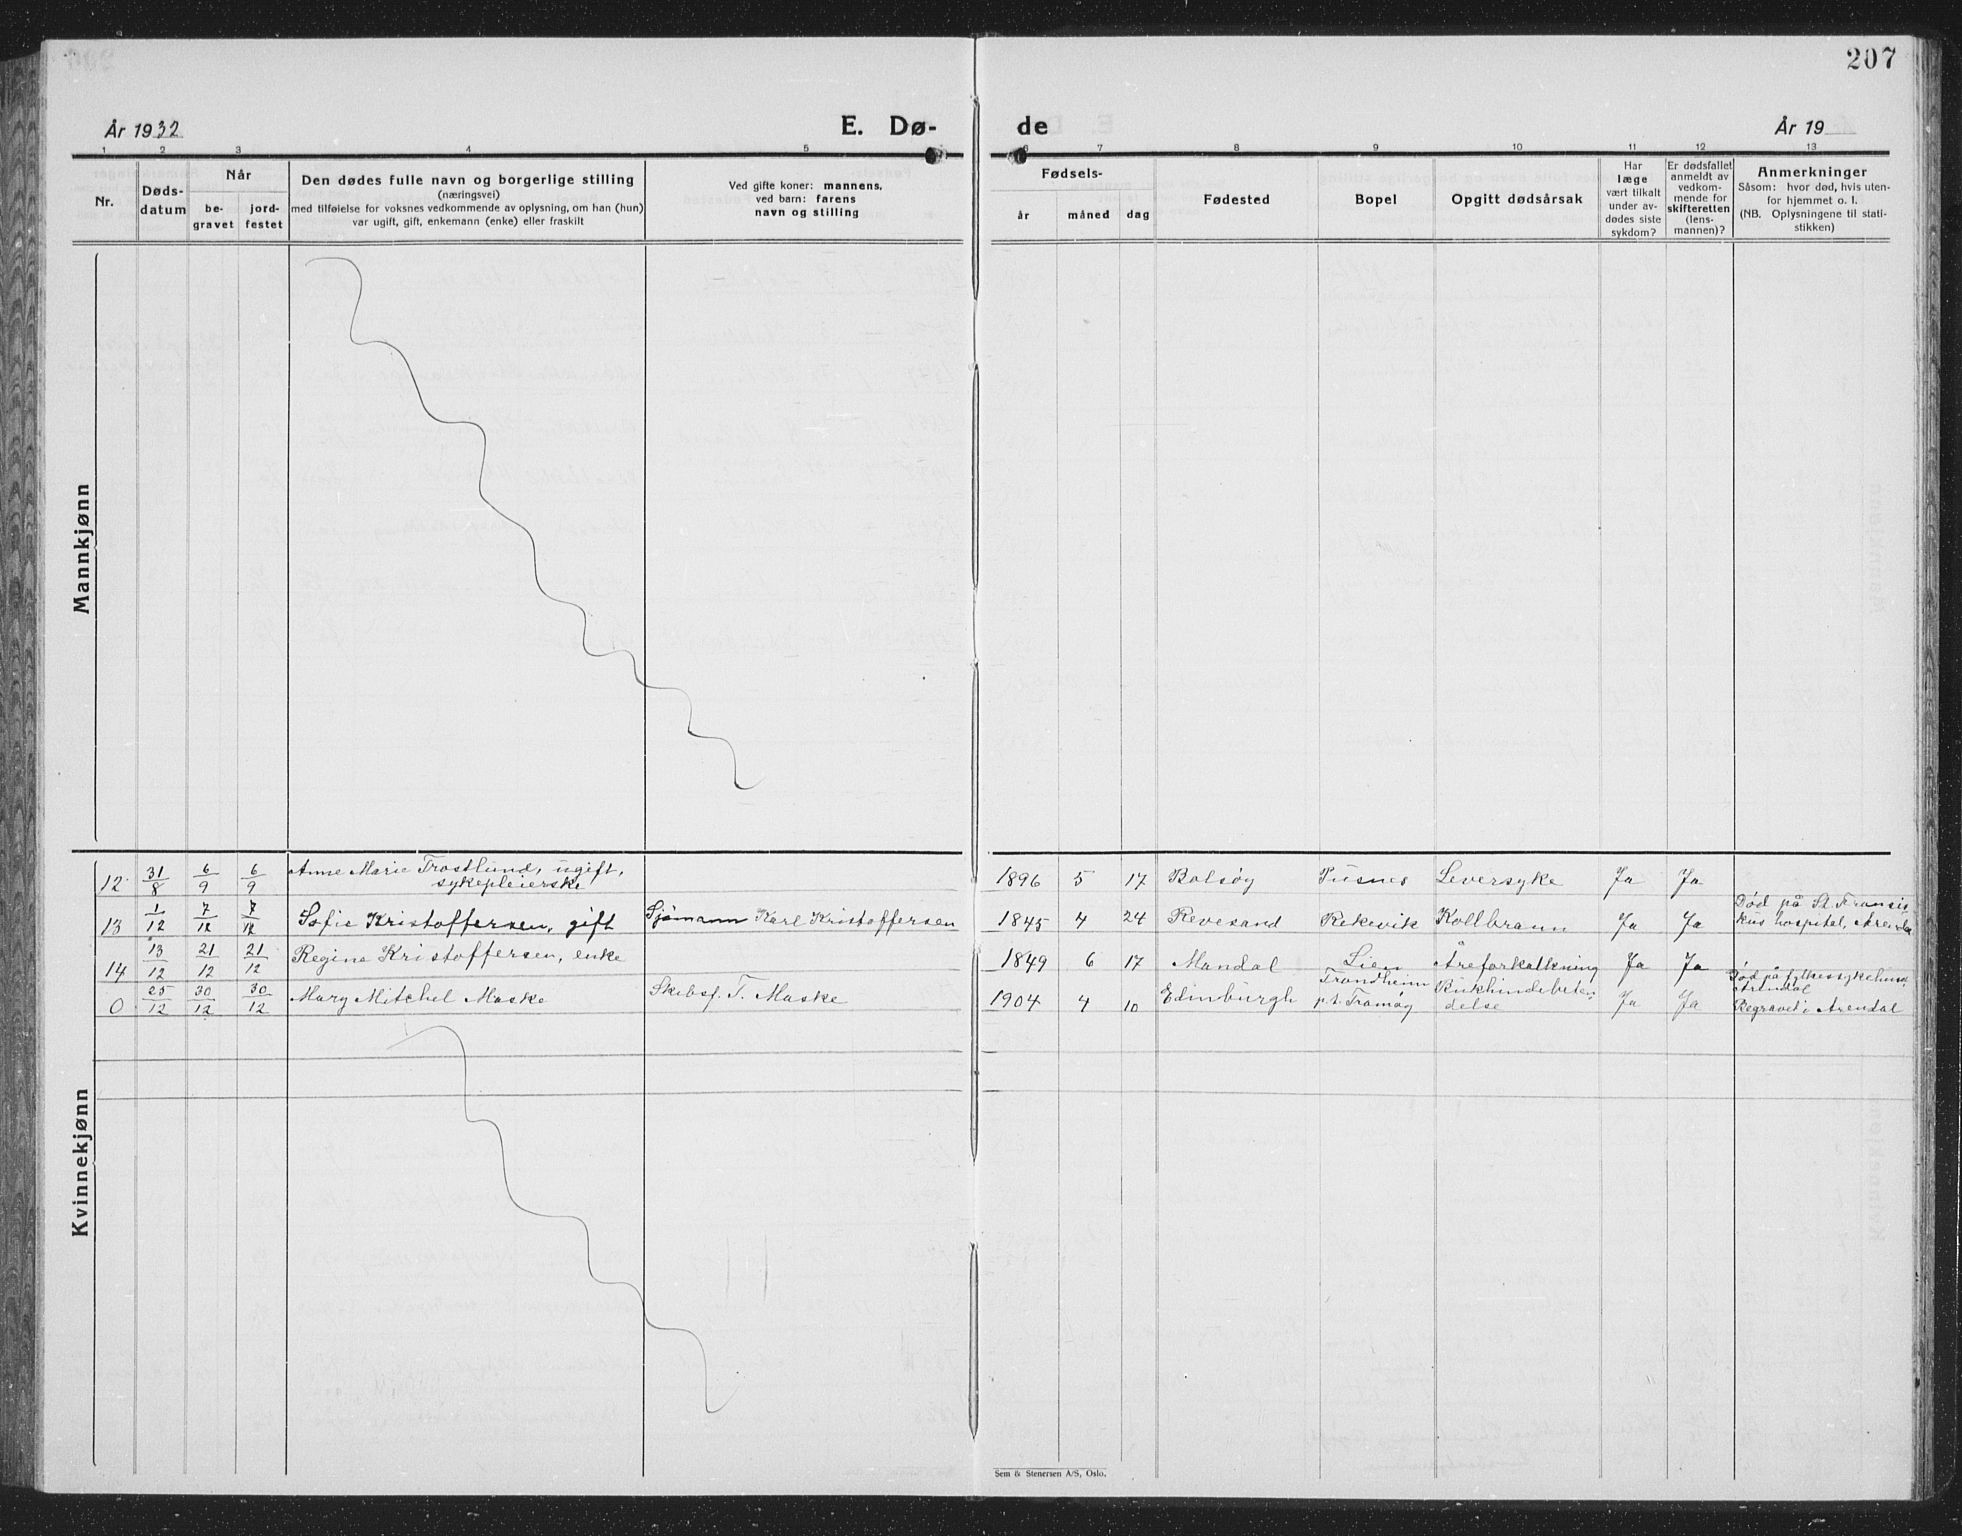 207
År 1932
E. Dø-
de
År 19
1 2 3 4 5 6 7 8 9 10 11 12 13
Nr.
Døds-
datum
Når
be-
gravet
jord-
festet
Den dødes fulle navn og borgerlige stilling
(næringsvei)
med tilføielse for voksnes vedkommende av oplysning, om han (hun)
var ugift, gift, enkemann (enke) eller fraskilt
Ved gifte koner: mannens,
ved barn: farens
navn og stilling
Fødsels-
år måned dag
Fødested
Bopel
Opgitt dødsårsak
Har
læge
vært tilkalt
under av-
dødes siste
sykdom?
Er dødsfallet
anmeldt av
vedkom-
mende for
skifteretten
(lens-
mannen)?
Anmerkninger
Såsom: hvor død, hvis uten-
for hjemmet o. l.
(NB. Oplysningene til stati-
stikken)
Mannkjønn
Kvinnekjønn
12 31/8 6/9 6/9 Anne Marie Trostlund, ugift,
sykepleierske
1896 5 17 Bolsøy Pusnes Leversyke Ja Ja
13 1/12 7/12 7/12 Sofie Kristoffersen, gift Sjömann Karl Kristoffersen 1845 4 24 Revesand Rekevik Kollbrann Ja Ja
Død på St. Fransis
kus hospital, Arendal
14 13/12 21/12 21/12 Regine Kristoffersen, enke 1849 6 17 Mandal Lien Åreforkalkning Ja Ja
0 25/12 30/12 30/12 Mary Mitchel Maske Skibsf. T. Maske 1904 4 10 Edinburgh
Trondheim
p.t. Tromøy
delse
Ja Ja
Død på fylkessykehuset,
Arendal
Begravet i Arendal
Sem & Stenersen A/S, Oslo.